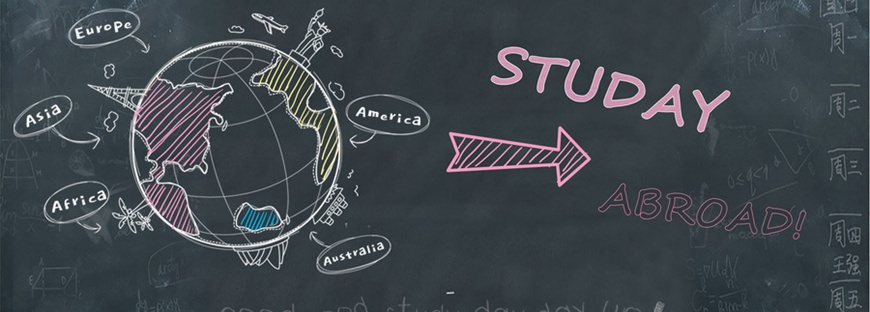 Europe
Asia
Africa
America
Australia
STUDAY
ABROAD!
周一
周二
周三
周四
王强
周五